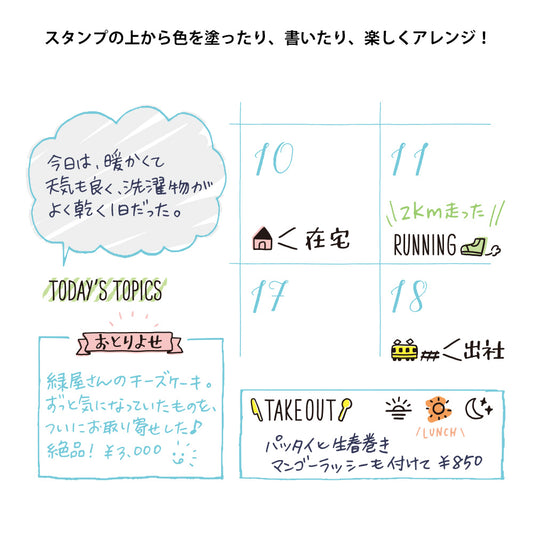 スタンプの上から色を塗ったり、書いたり、楽しくアレンジ！
今日は、暖かくて
天気も良く、洗濯物が
よく乾く1日だった。
TODAY'S TOPICS
10
11
在宅
\\2km走った//
RUNNING
17
18
出社
おとりよせ
緑屋さんのチーズケーキ。
ずっと気になっていたものを、
ついにお取り寄せした♪
絶品! ¥3,000
TAKEOUT
/LUNCH\
パッタイと生春巻き
マンゴーラッシーも付けて ¥850